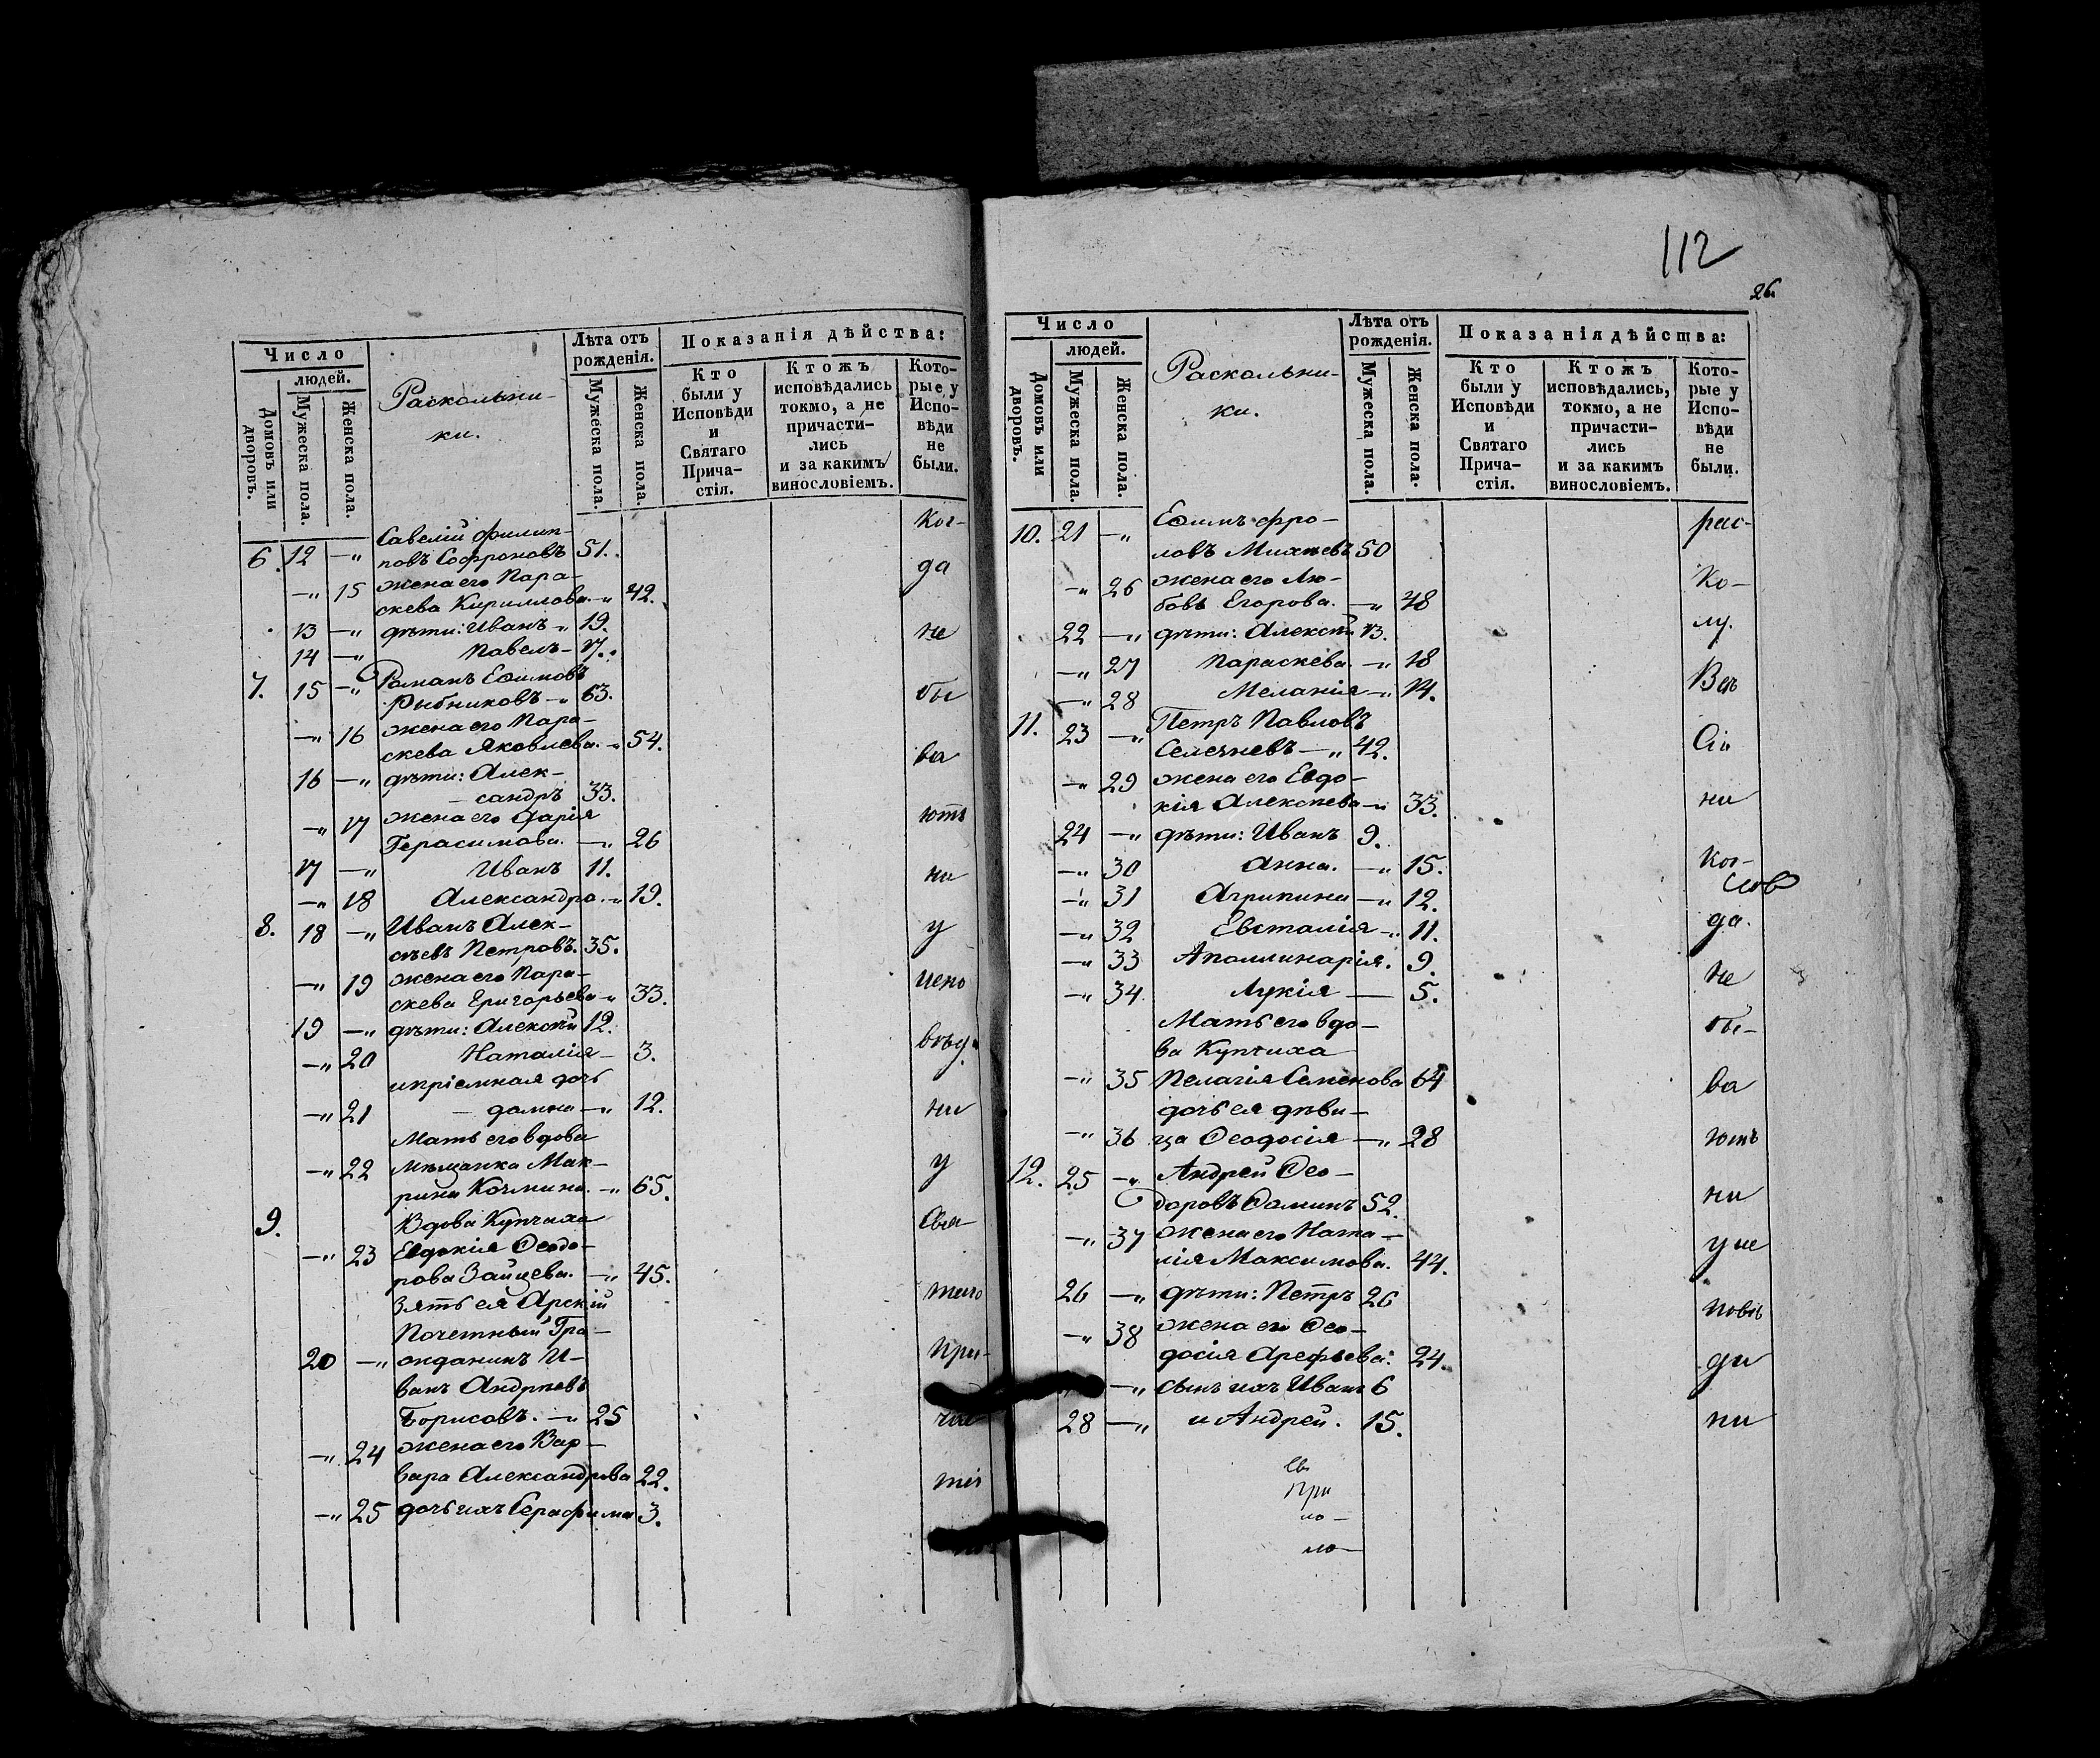 Число
людей.
Домовъ или дворовъ.
Мужеска пола.
Женска пола.
Раскольни-
ки.
Лѣта отъ рожденія.
Мужеска пола.
Женска пола.
Показанія дѣйства:
Кто были у Исповѣди и Святаго Прича-стія.
Ктожъ исповѣдались токмо, а не причасти-лись и за какимъ винословіемъ.
Кото-рые у Испо-вѣди не были.
Савелій Филип-
6. 12 —„ повъ Софроновъ 51.
—„ 15 жена его Пара-
скева Кириллова. —„ 42.
13 —„ дѣти: Иванъ —„ 19.
14 —„ Павелъ — 17.
7. 15 —„ Романъ Ефимовъ
Рыбниковъ —„ 63.
—„ 16 жена его Пара-
скева Яковлева. —„ 54.
16 —„ дѣти: Алек-
сандръ 33.
—„ 17 жена его Дарія
Герасимова. —„ 26
17 —„ Иванъ 11.
—„ 18 Александра. —„ 19.
8. 18 —„ Иванъ Алек-
сѣевъ Петровъ. 35.
—„ 19 жена его Пара-
скева Григорьева —„ 33.
19 —„ дѣти: Алексѣй 12.
—„ 20 Наталія — 3.
и пріемная дочь
—„ 21 — домна —„ 12.
Мать его вдова
—„ 22 мѣщанка Мак-
рина Космина. —„ 65.
9. Вдова Купчиха
—„ 23 Евдокія Ѳеодо-
рова Зайцева. —„ 45.
Зять ея Арскій
Почетный Гра-
20 —„ жданинъ И-
ванъ Андреевъ
Борисовъ. —„ 25
—„ 24 жена его Вар-
вара Александрова 22.
—„ 25 дочь ихъ Серафима 3.
Ког-
да
не
бы
ва
ютъ
ни
у
испо
вѣд
ни
у
Свя-
таго
При-
час
тія
112
26.
Число
людей.
Домовъ или дворовъ.
Мужеска пола.
Женска пола.
Раскольни-
ки.
Лѣта отъ рожденія.
Мужеска пола.
Женска пола.
Показанія дѣйства:
Кто были у Исповѣди и Святаго Прича-стія.
Ктожъ исповѣдались, токмо, а не причасти-лись и за какимъ винословіемъ.
Кото-рые у Испо-вѣди не были.
10. 21 —„ Ефимъ Фро-
ловъ Михѣевъ 50
—„ 26 жена его Лю-
бовь Егорова. —„ 48
22 —„ дѣти: Алексѣй 13.
—„ 27 Параскева. —„ 18
—„ 28 Меланія —„ 14.
11. 23 —„ Петръ Павловъ
Селезневъ —„ 42.
—„ 29 жена его Евдо-
кія Алексѣева —„ 33.
24 —„ дѣти: Иванъ 9.
—„ 30 Анна. —„ 15.
—„ 31 Агрипина —„ 12.
—„ 32 Евсталія —„ 11.
—„ 33 Аполлинарія. 9.
—„ 34. Лукія — 5.
Мать его вдо-
ва Купчиха
—„ 35 Пелагія Семенова 64
дочь ея дѣви-
—„ 36 ца Ѳеодосія —„ 28
12. 25 —„ Андрей Ѳео-
доровъ Ѳоминъ 52.
—„ 37 жена его Ната-
лія Максимова. 44.
26 —„ дѣти: Петръ 26
—„ 38 жена его Ѳео-
досія Арефьева. 24.
—„ сынъ ихъ Иванъ 6
28 —„ и Андрей. 15.
св
При
ло —
ло —
рас-
Ко-
лу.
Ве
Сіи
ни
Ког-
да.
Не
бы-
ва
ютъ
ни
у ис
повѣ
ди
ни